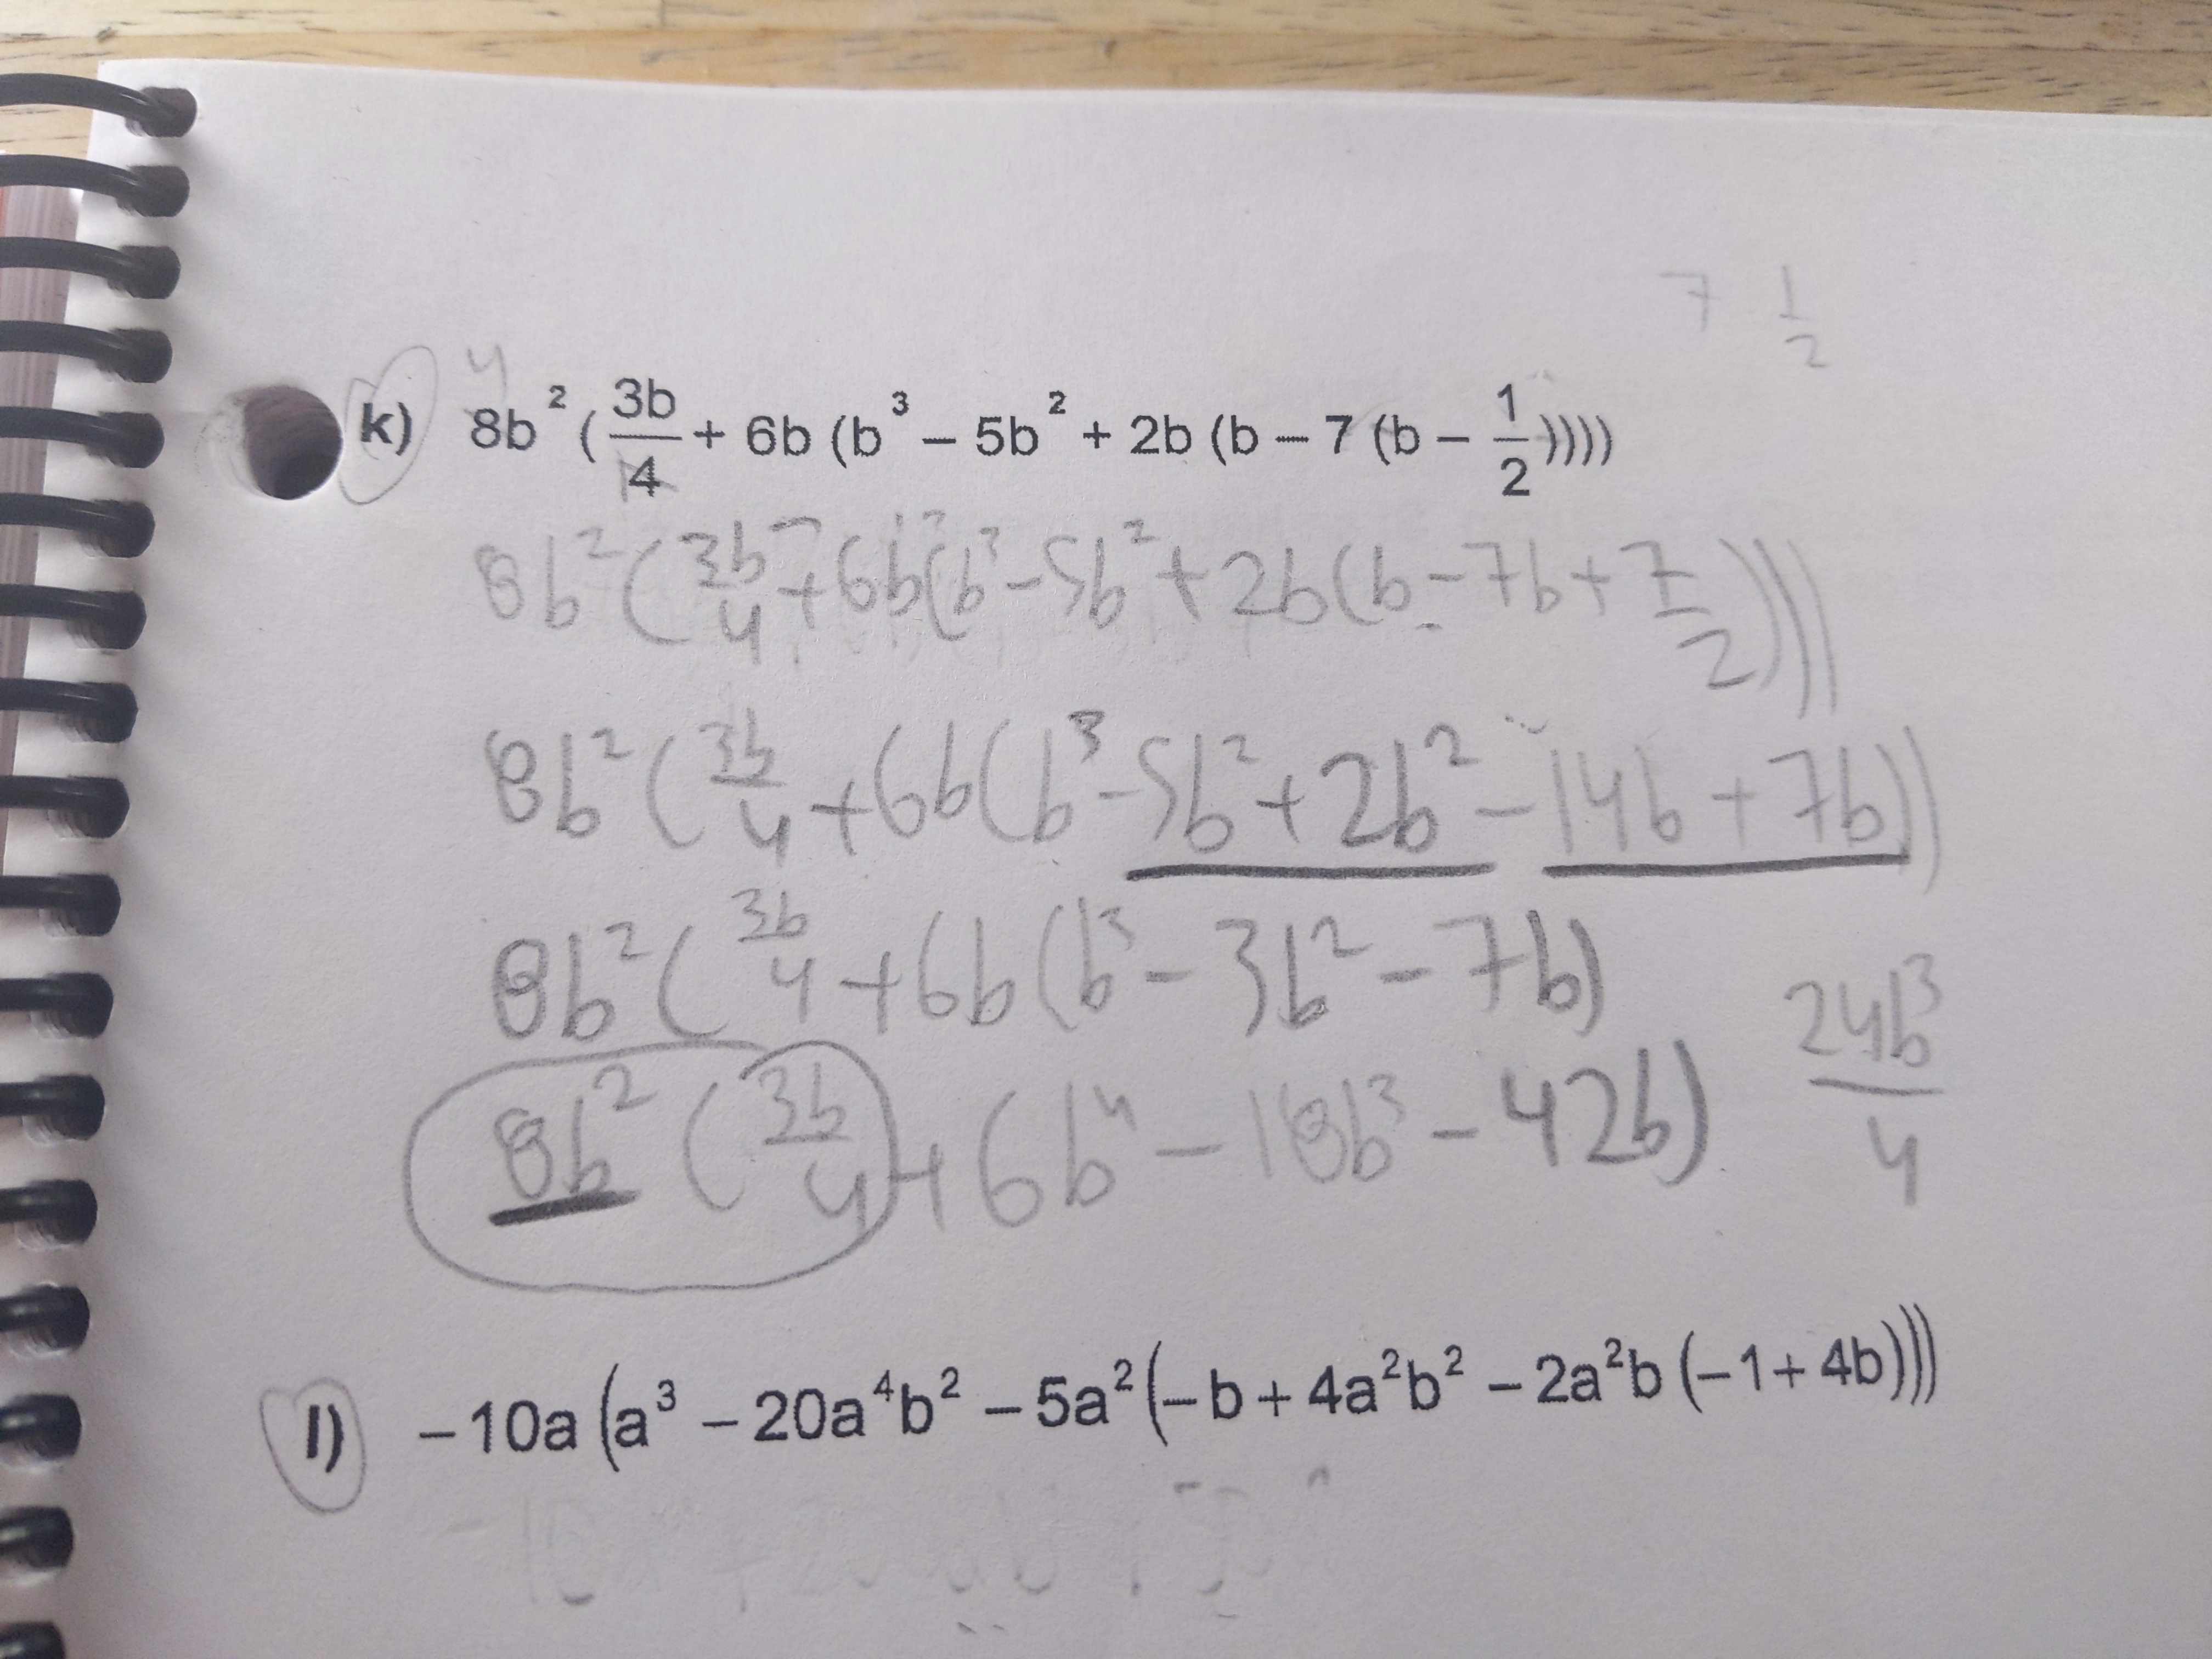 7 1/2
4
k) 8b² (3b/4 + 6b (b³ – 5b² + 2b (b – 7 (b – 1/2))))
8b² (3b/4 + 6b(b³ - 5b² + 2b(b - 7b + 7/2)))
8b² (3b/4 + 6b(b³ - 5b² + 2b² - 14b + 7b))
8b² (3b/4 + 6b (b³ - 3b² - 7b)
8b² (3b/4 + 6b⁴ - 18b³ - 42b) 24b³/4
l) –10a (a³ – 20a⁴b² – 5a² (–b + 4a²b² – 2a²b (–1 + 4b)))